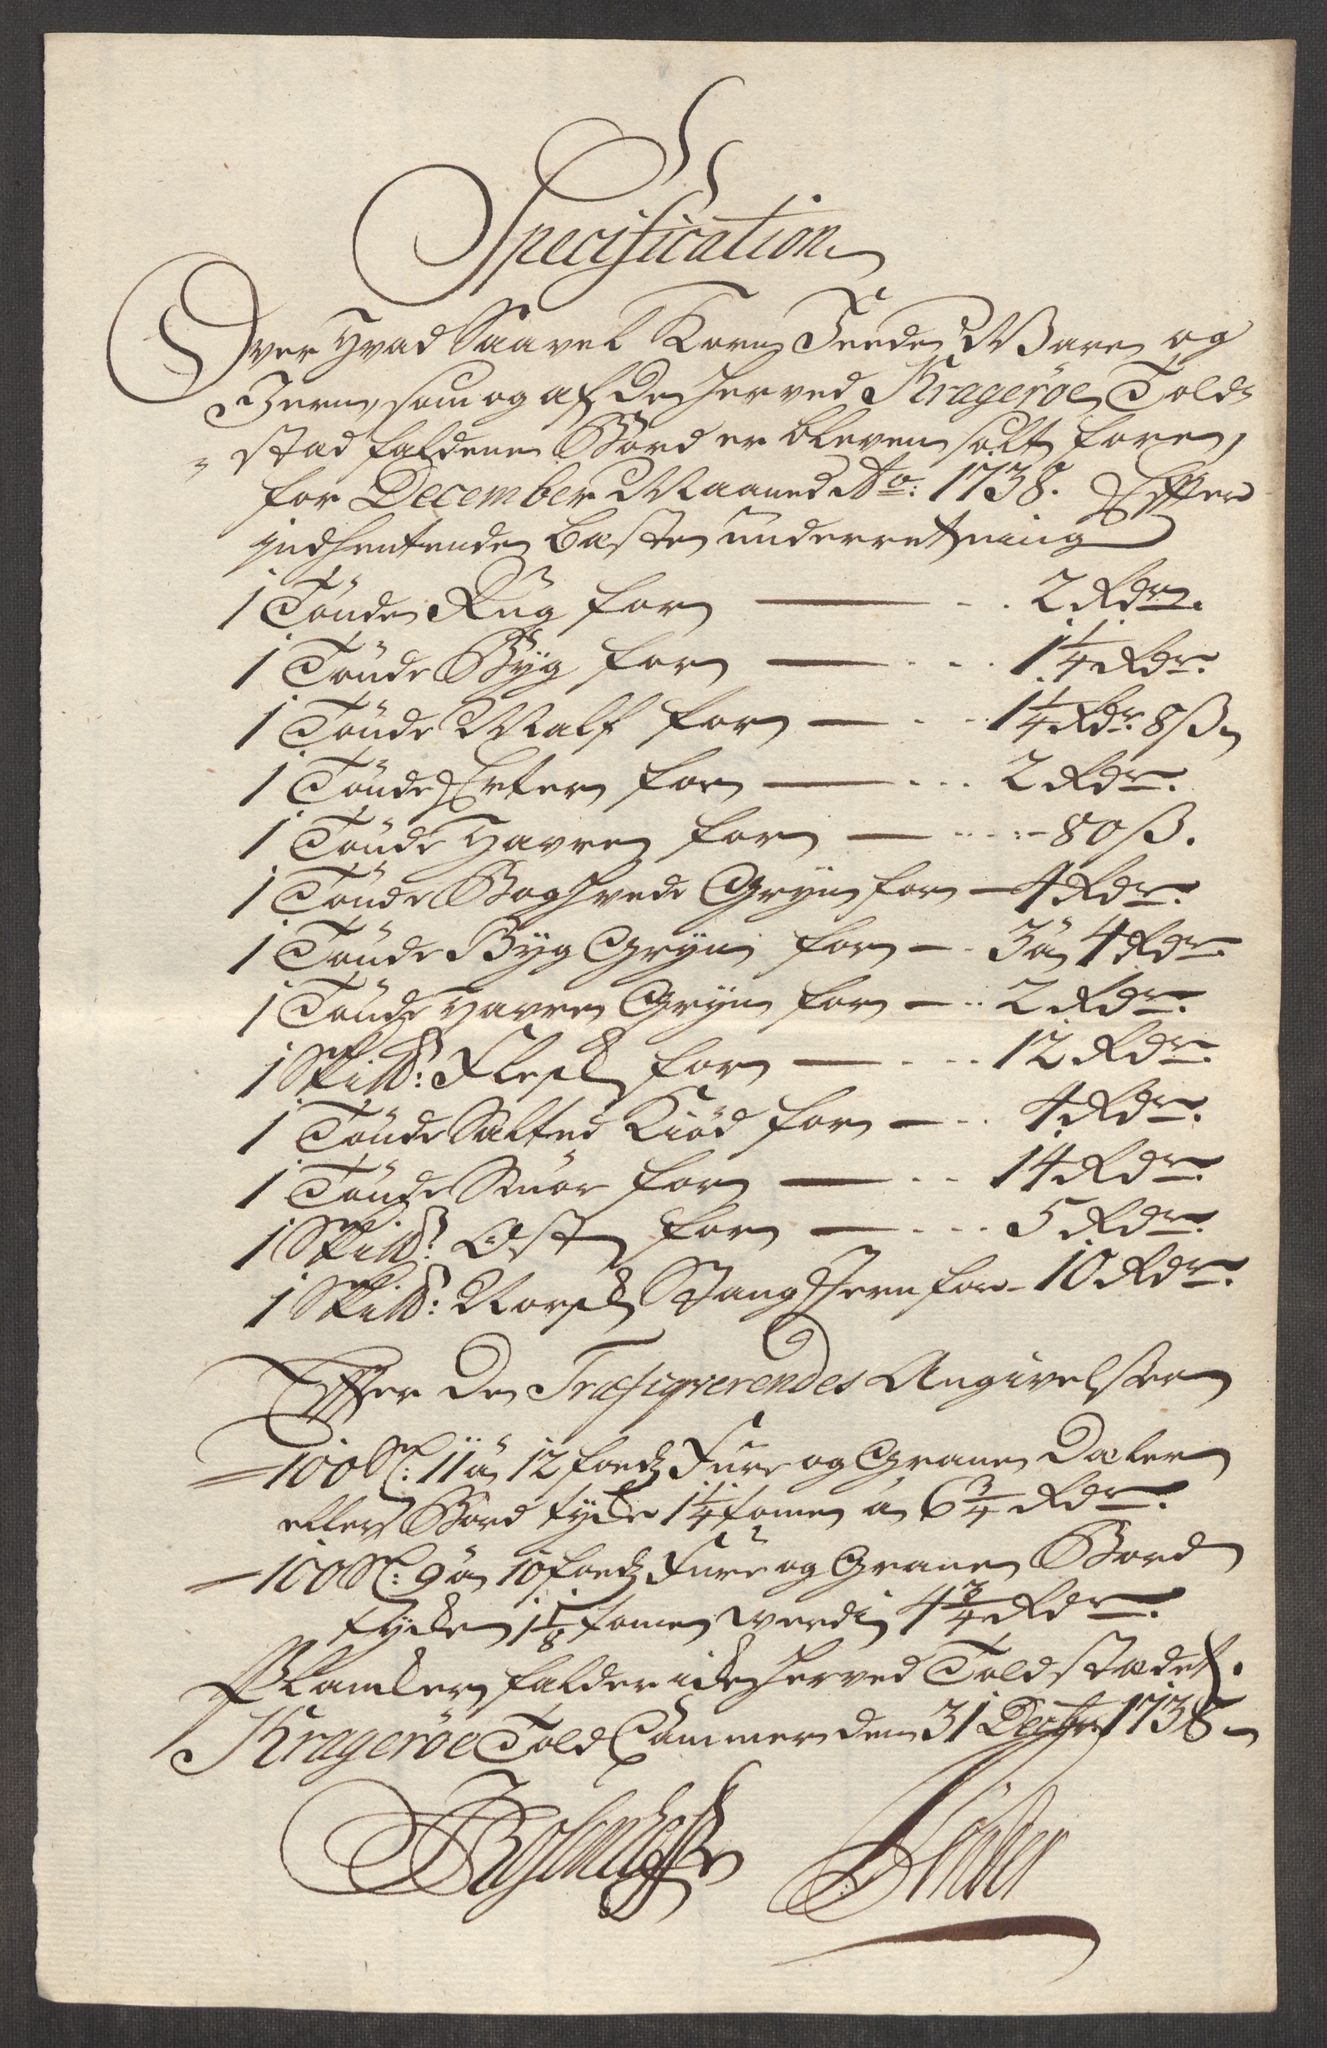 Specification
Over Hvad Saavel Korn Feede Ware og
Jern, som og af de her ved Krageröe Told-
stad faldene Bord er bleven solt for,
for December Maaned Ao: 1738. Effter
indhentende beste underretning
1 Tönde Rüg for 2 Rdr.
1 Tönde Byg for 1 1/4 Rdr.
1 Tönde Malt for 1 1/4 Rdr 8 ß
1 Tönde Erter for 2 Rdr.
1 Tönde Havre for 80 ß.
1 Tönde Boghvede Gryn for 4 Rdr.
1 Tönde Byg Gryn for 3 à 4 Rdr.
1 Tönde Havre Gryn for 2 Rdr.
1 Skib: Flesk for 12 Rdr.
1 Tönde Salted Kiöd for 4 Rdr.
1 Tönde Smör for 14 Rdr.
1 Skib: Ost for 5 Rdr.
1 Skib: Norsk Stang Jern for 10 Rdr.
Effter De Trafiqverendes Angivelser
100 St: 11 à 12 foeds Fure og Grane Deler
eller Bord tyke 1 1/4 tomme à 6 3/4 Rdr.
100 St: 9 à 10 foeds Fure og Grane Bord
tyke 1 1/8 tomme werdi 4 3/4 Rdr.
Planker falder icke her ved Toldstædet.
Krageröe Told Cammer den 31 Decbr 1738